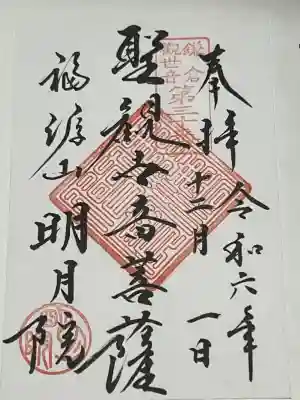 奉拝
令和六年
十二月一日
鎌倉
観世音
第三十
聖観世音菩薩
福源山
明月院